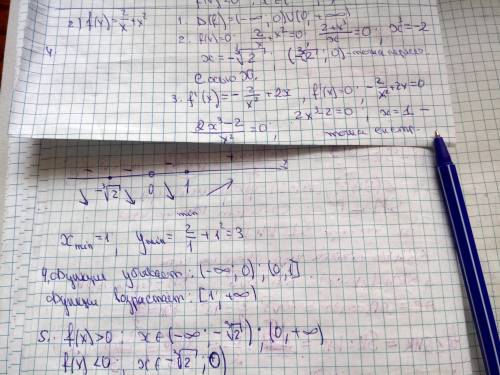 2) f(x) = 2/x + x²
1. D(f) = (-∞, 0) ∪ (0, +∞)
2. f(x)=0, 2/x + x² = 0, (2+x³)/x = 0, x³ = -2
x = -∛2, (-∛2; 0) -
с осью Ox.
3. f'(x) = -2/x² + 2x, f'(x)=0, -2/x² + 2x = 0
(2x³-2)/x² = 0, 2x³-2=0, x=1 -
точка экстр.
- - - + x
-∛2 0 1
min
x min = 1, y min = 2/1 + 1² = 3
4. Функция убывает: (-∞, 0); (0, 1]
функция возрастает: [1, +∞)
5. f(x)>0; x∈(-∞; -∛2); (0, +∞)
f(x)<0; x∈-∛2; 0)